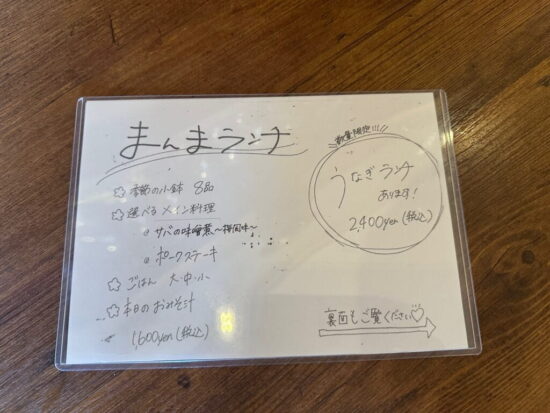 まんまランチ
☆ 季節の小鉢 8品
☆ 選べるメイン料理
サバの味噌煮〜梅風味〜
ポークステーキ
☆ ごはん 大・中・小
☆ 本日のおみそ汁
1,600yen(税込)
数量限定!!!
うなぎランチ
あります!
2,400yen(税込)
裏面もご覧ください♡